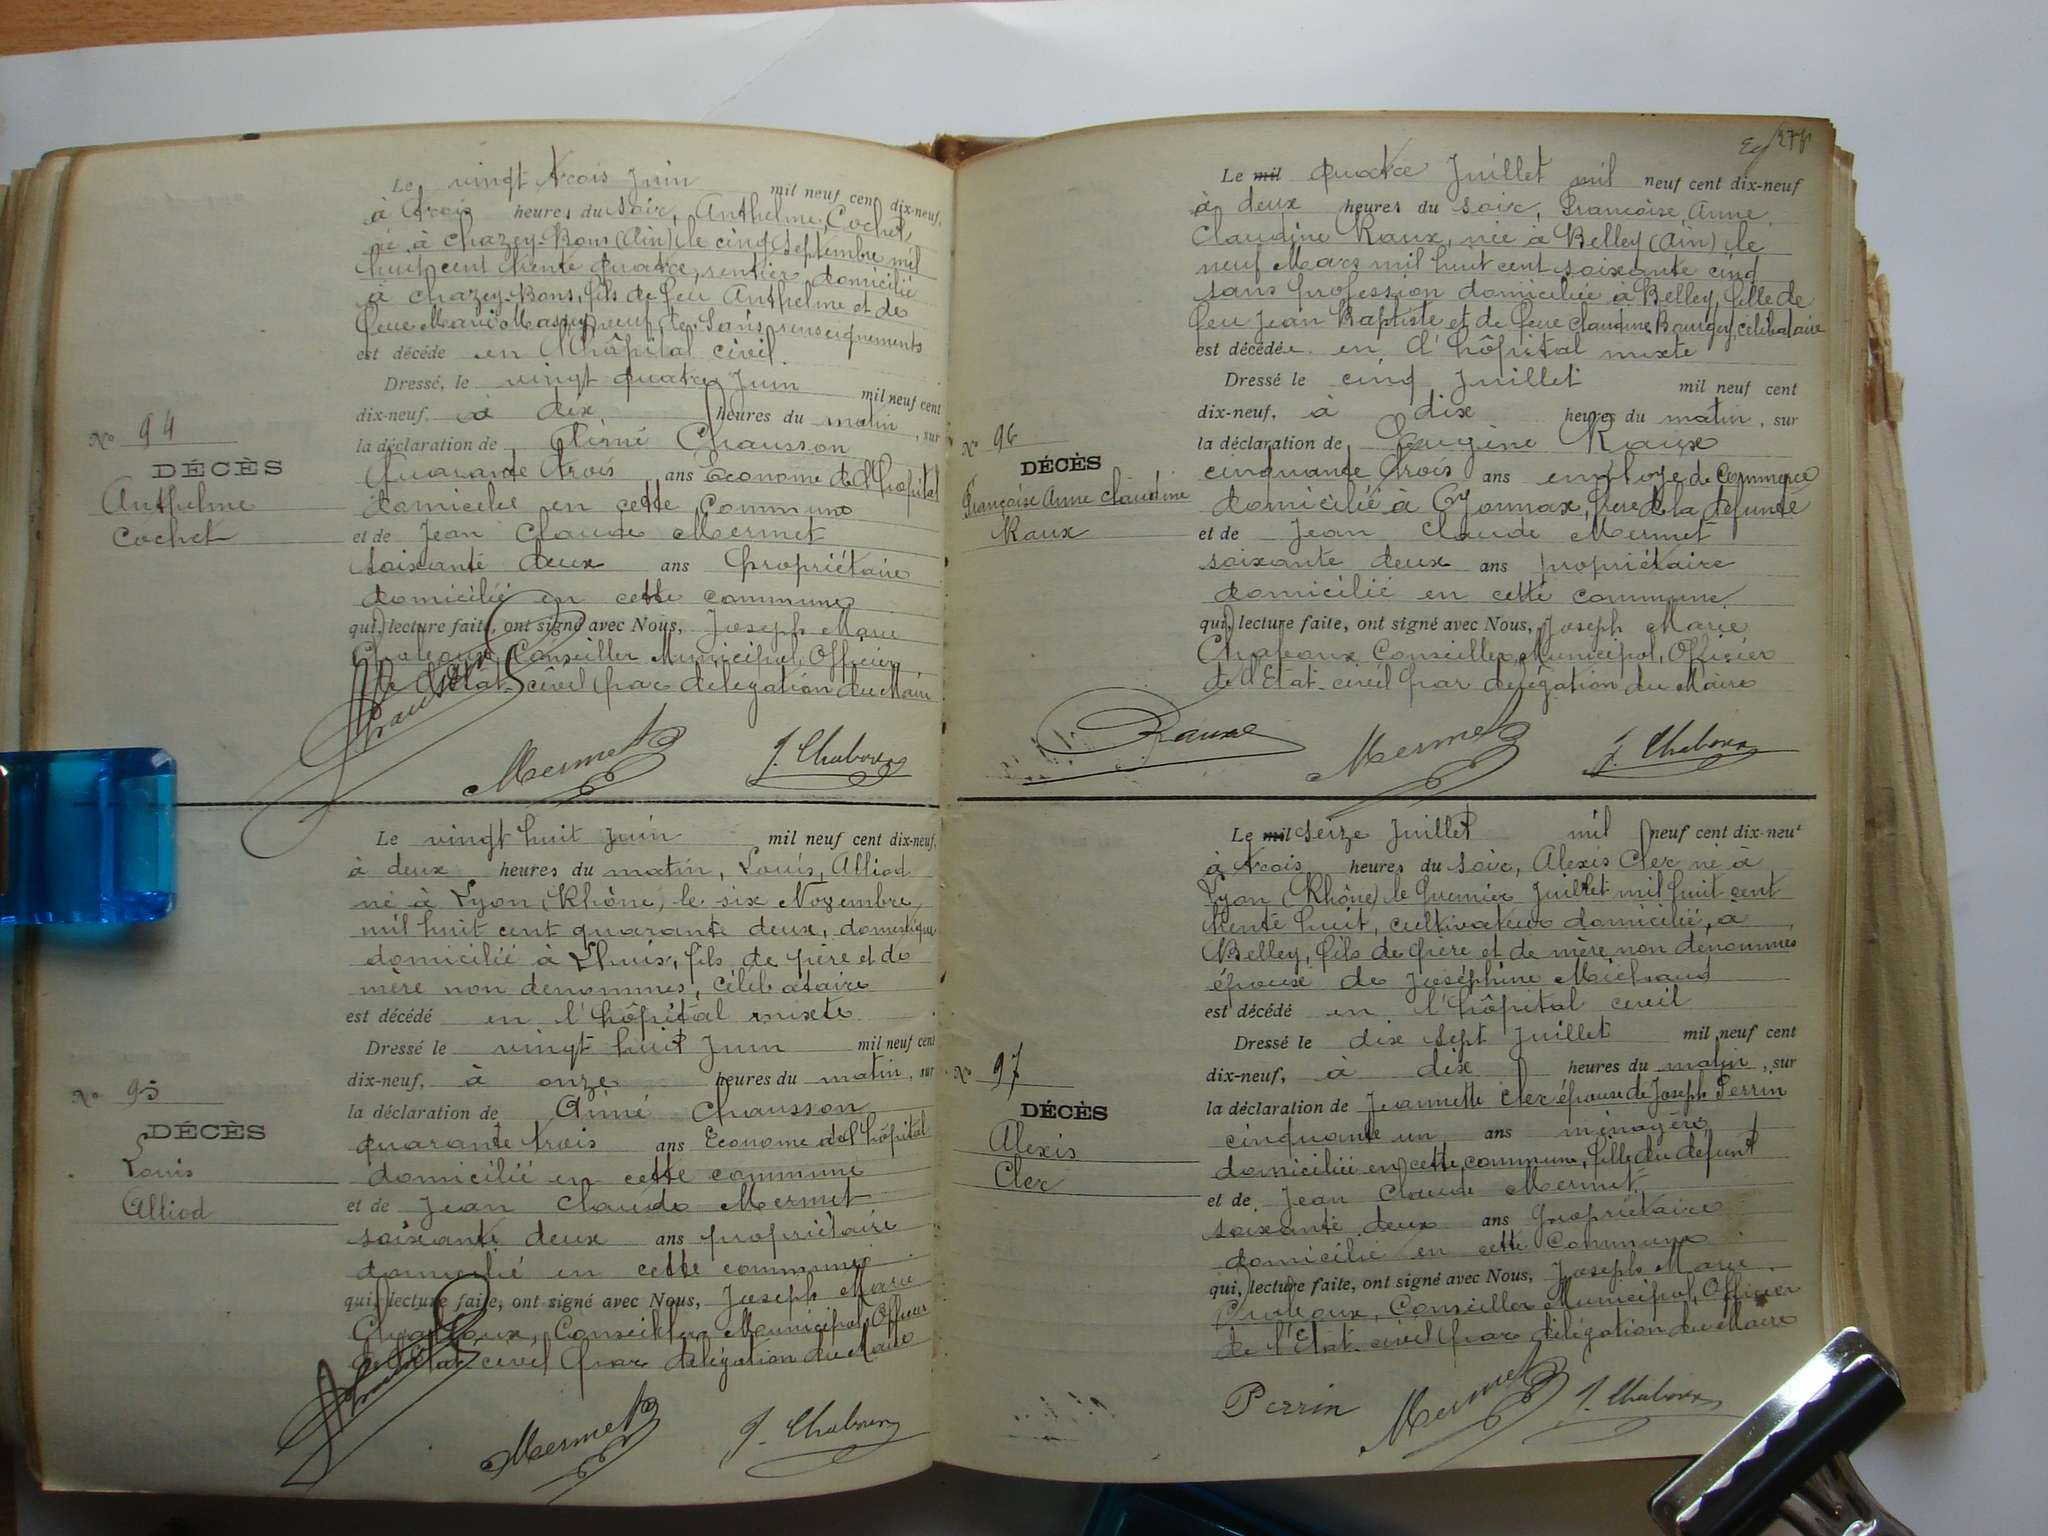 Le vingt trois Juin mil neuf cent dix-neuf,
à trois heures du soir, Anthelme Cochet,
né à Chazey-Bons (Ain) le cinq Septembre mil
huit cent trente quatre, rentier, domicilié
à Chazey-Bons, fils de feu Anthelme et de
feue Marie veuf de. Sans renseignements
est décédé en l'hôpital civil.
Dressé, le vingt quatre Juin mil neuf cent
dix-neuf, à dix heures du matin, sur
la déclaration de Aimé Chausson
Quarante trois ans Econome de l'hôpital
domicilié en cette commune
et de Jean Claude Mermet
soixante deux ans propriétaire
domicilié en cette commune
qui, lecture faite, ont signé avec Nous, Joseph Marie
Conseiller Municipal, Officier
de l'Etat-civil par délégation du Maire
Chausson Mermet J. Chaboux
No 94
DÉCÈS
Anthelme
Cochet
Le vingt huit Juin mil neuf cent dix-neuf,
à deux heures du matin, Louis, Alliod
né à Lyon (Rhône) le six Novembre
mil huit cent quarante deux, domestique
domicilié à Lhuis, fils de père et de
mère non dénommés, célibataire
est décédé en l'hôpital mixte
Dressé le vingt huit Juin mil neuf cent
dix-neuf, à onze heures du matin, sur
la déclaration de Aimé Chausson
quarante trois ans Econome de l'hôpital
domicilié en cette commune
et de Jean Claude Mermet
soixante deux ans propriétaire
domicilié en cette commune
qui, lecture faite, ont signé avec Nous, Joseph Marie
Conseiller Municipal, Officier
de l'Etat civil par délégation du Maire
Mermet J. Chaboux
No 95
DÉCÈS
Louis
Alliod
Le mil quatre Juillet mil neuf cent dix-neuf
à deux heures du soir, Françoise, Anne
Claudine Raux, née à Belley (Ain) le
neuf Mars mil huit cent soixante cinq
sans profession domiciliée à Belley, fille de
feu Jean Baptiste et de feue Claudine célibataire
est décédée en l'hôpital mixte
Dressé le cinq Juillet mil neuf cent
dix-neuf, à dix heures du matin, sur
la déclaration de Eugène Raux
cinquante trois ans employé de commerce
domicilié à Oyonnax, frère de la défunte
et de Jean Claude Mermet
soixante deux ans propriétaire
domicilié en cette commune
qui, lecture faite, ont signé avec Nous, Joseph Marie
Chaboux Conseiller Municipal, Officier
de l'Etat-civil par délégation du Maire
Raux Mermet J. Chaboux
No 96
DÉCÈS
Françoise Anne Claudine
Raux
Le mil seize Juillet mil neuf cent dix-neuf
à trois heures du soir, Alexis Cler né à
Lyon (Rhône) le premier Juillet mil huit cent
trente huit, cultivateur domicilié à
Belley, fils de père et de mère non dénommés
époux de Joséphine Michaud
est décédé en l'hôpital civil
Dressé le dix sept Juillet mil neuf cent
dix-neuf, à dix heures du matin, sur
la déclaration de Jeannette Cler épouse de Joseph Perrin
cinquante un ans ménagère
domiciliée en cette commune, fille du défunt
et de Jean Claude Mermet
soixante deux ans propriétaire
domicilié en cette commune
qui, lecture faite, ont signé avec Nous, Joseph Marie
Chaboux, Conseiller Municipal, Officier
de l'Etat-civil par délégation du Maire
Perrin Mermet J. Chaboux
No 97
DÉCÈS
Alexis
Cler